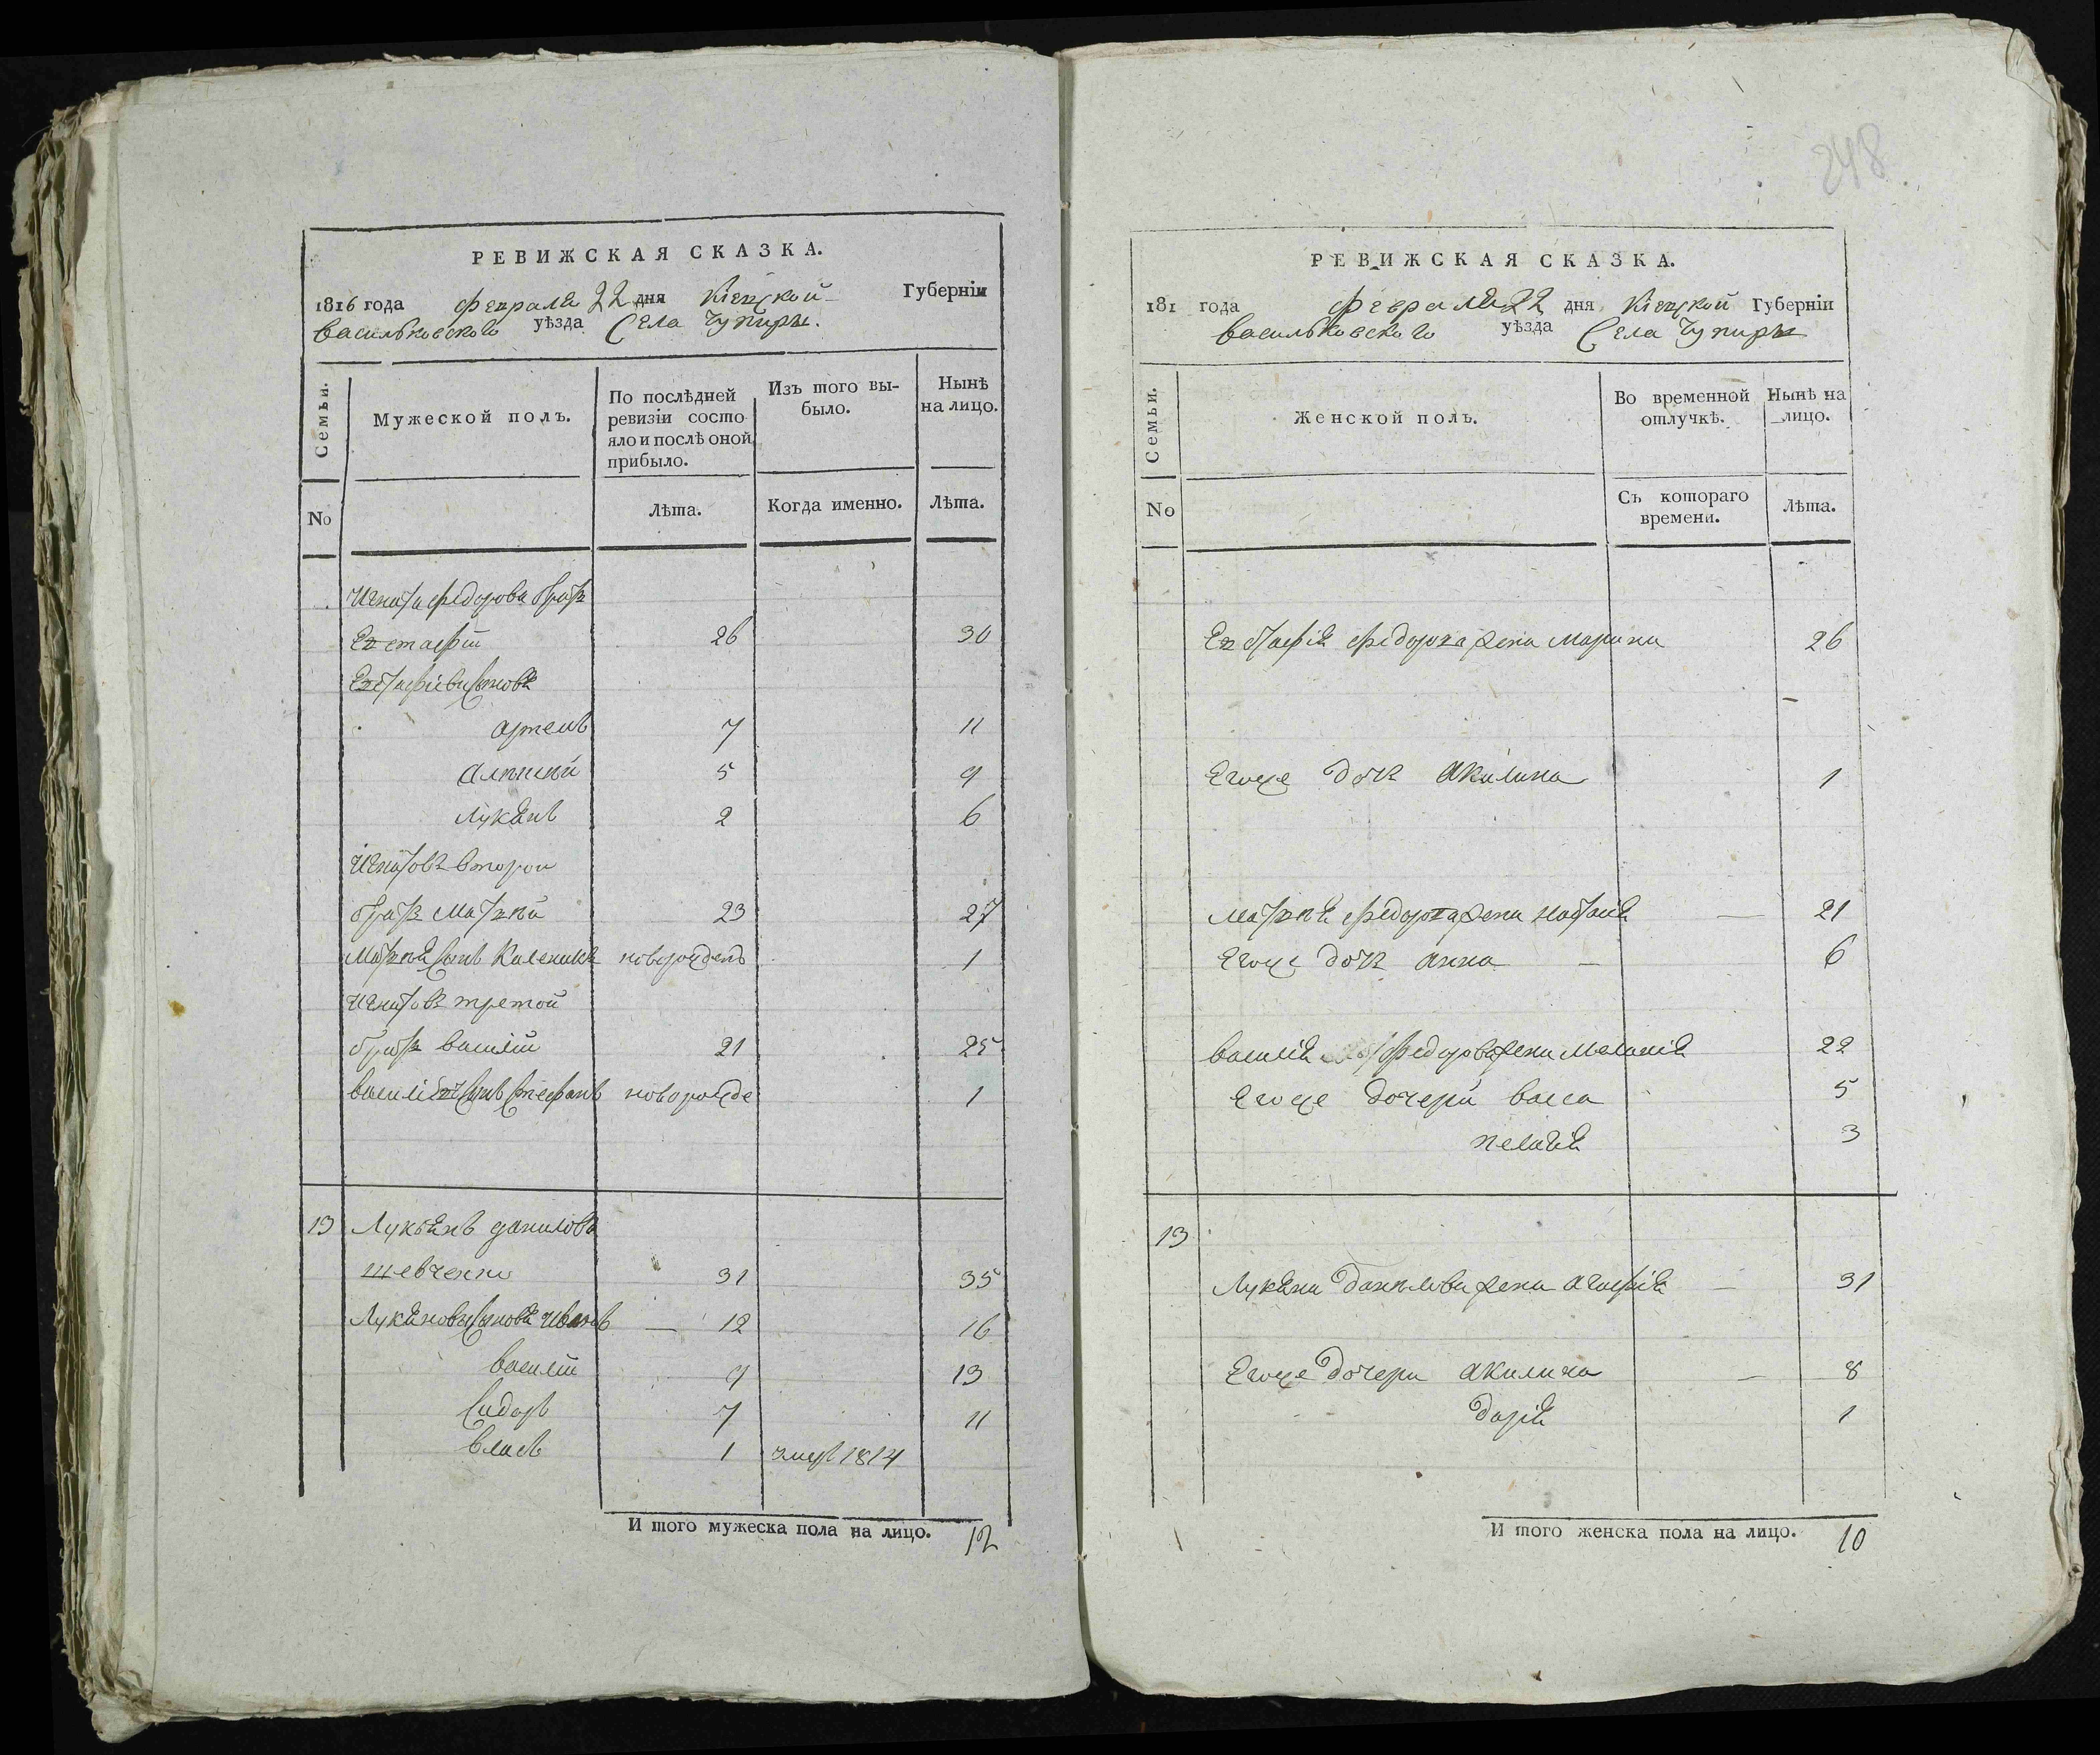 РЕВИЖСКАЯ СКАЗКА.
1816 года февраля 22 дня Кіевской Губерніи
васильковского уѣзда Села Чупиры.
Семьи.
Мужеской полъ.
По послѣдней ревизіи состояло и послѣ оной прибыло.
Изъ того выбыло.
Нынѣ на лицо.
No
Лѣта.
Когда именно.
Лѣта.
Игната федорова братъ
Евстафій 26 30
Евстафіевы Сыновя
артемъ 7 11
5 9
Лукянъ 2 6
Игнатовъ второй
братъ Матвѣй 23 27
Матвѣя Сынъ Каленикъ новорожденъ 1
Игнатовъ третой
братъ василій 21 25
василіевъ Сынъ Стефанъ новорожде 1
13 Лукьянъ даниловъ
шевченко 31 35
Лукяновы Сыновя иванъ — 12 16
василій 9 13
Сидоръ 7 11
власъ 1 умре 1814
И того мужеска пола на лицо. 12
248
РЕВИЖСКАЯ СКАЗКА.
181 года Февраля 22 дня Кіевской Губерніи
васильковского уѣзда Села Чупиры
Семьи.
Женской полъ.
Во временной отлучкѣ.
Нынѣ на лицо.
No
Съ котораго времени.
Лѣта.
Евстафія федорова жена Марина 26
Егоже дочь акилина 1
Матвѣя федорова жена настасія — 21
Егоже дочь анна — 6
василія федорова жена Меланія 22
Егоже дочери васса 5
пелагія 3
13
Лукяна данилова жена агафія — 31
Егоже дочери акилина — 8
дарія 1
И того женска пола на лицо. 10